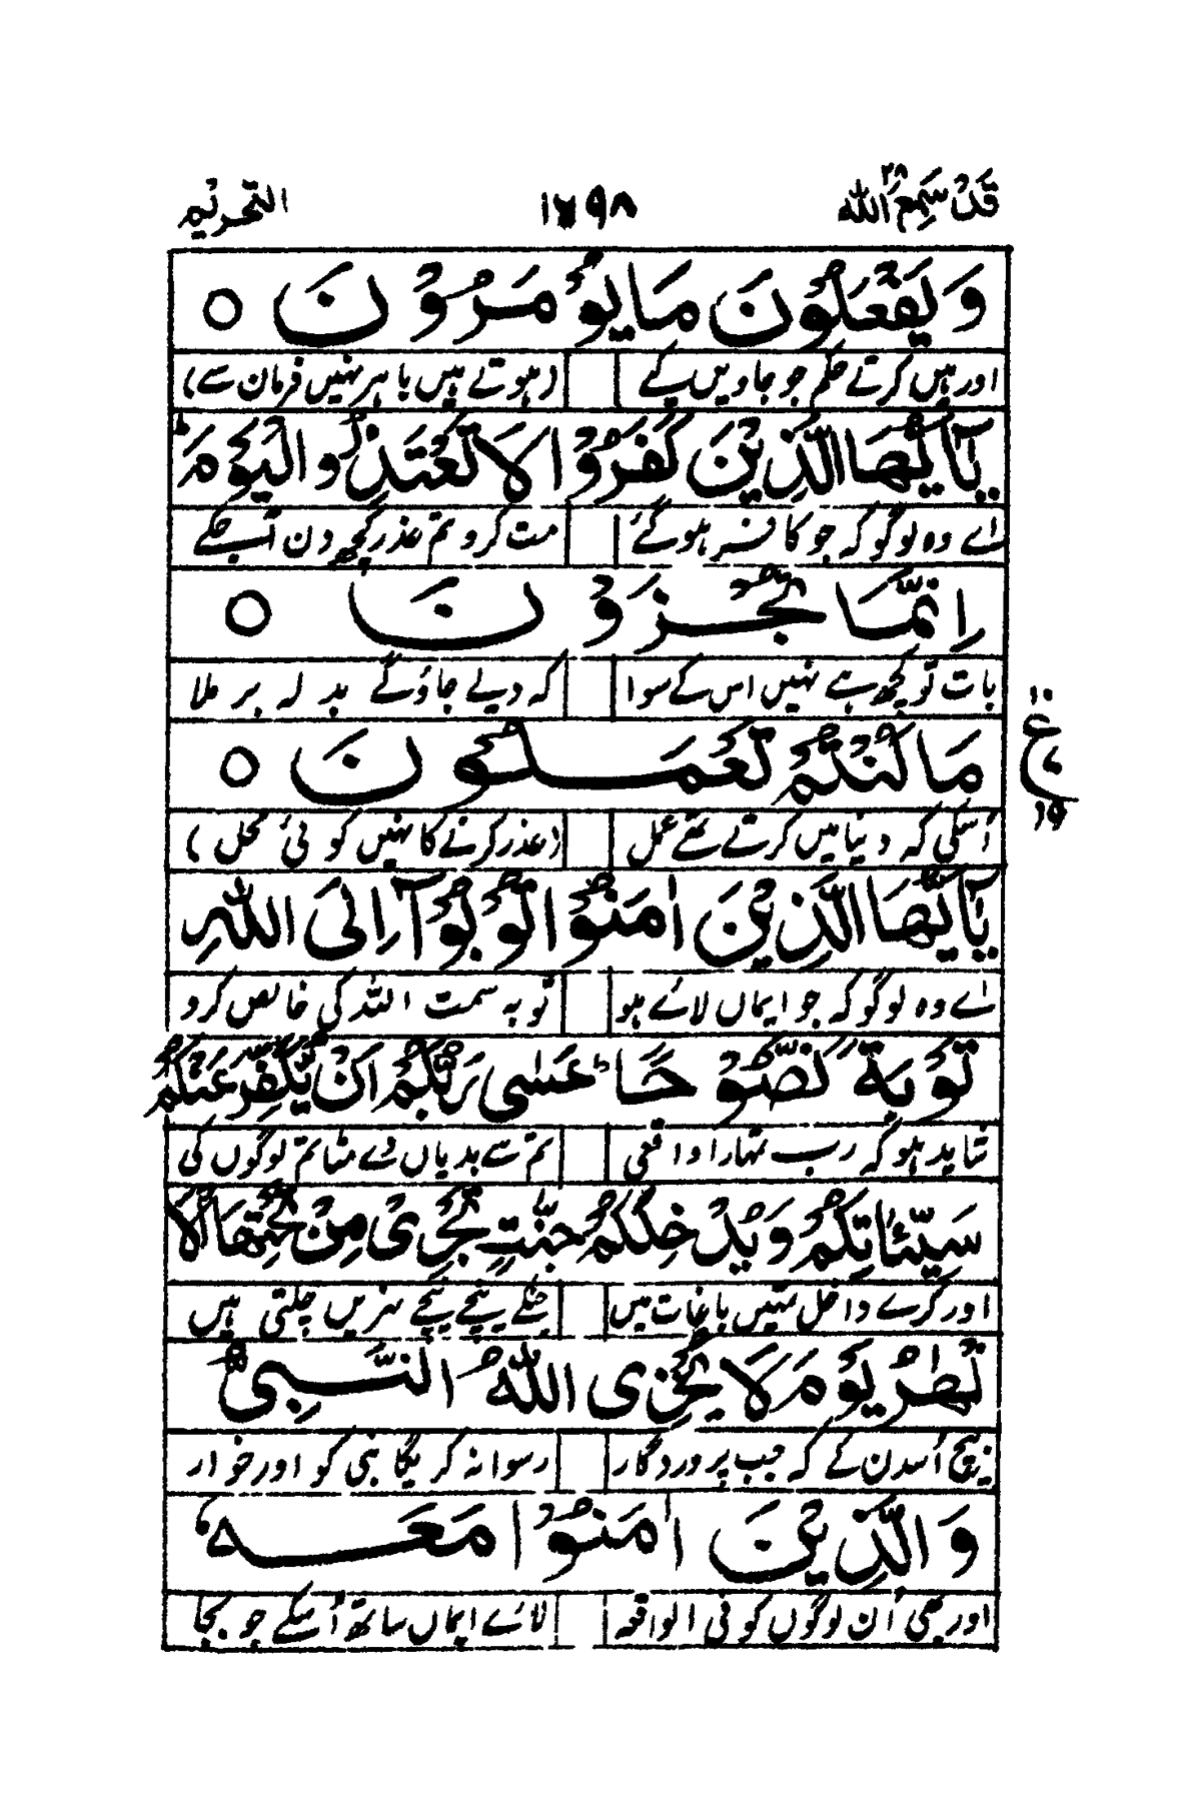 قَدْ سَمِعَ اللّٰه ۲۸ ۱۷۹۸ التحریم
وَيَفْعَلُوْنَ مَا يُؤْمَرُوْنَ ○
اور ہیں کرتے حکم جو جاویں گے (ہوتے ہیں باہر نہیں فرمان سے)
يٰٓاَيُّهَا الَّذِيْنَ كَفَرُوْا لَا تَعْتَذِرُوا الْيَوْمَ ؕ
اے وہ لوگو کہ جو کافر ہو گئے مت کرو تم عذر کچھ دن آج کے
اِنَّمَا تُجْزَوْنَ ○
بات تو کچھ ہے نہیں اس کے سوا کہ دیے جاؤ گے بدلہ برملا
مَا كُنْتُمْ تَعْمَلُوْنَ ○
اُسکی کہ دنیا میں کرتے تھے عمل (عذر کرنے کا نہیں کوئی محل)
۱۰ ع ۱۹
يٰٓاَيُّهَا الَّذِيْنَ اٰمَنُوْا تُوْبُوْٓا اِلَى اللّٰهِ
اے وہ لوگو کہ جو ایماں لائے ہو توبہ سمت اللہ کی خالص کرو
تَوْبَةً نَّصُوْحًا ؕ عَسٰى رَبُّكُمْ اَنْ يُّكَفِّرَ عَنْكُمْ
شاید ہو کہ رب تمہارا واقعی تم سے بدیاں دے مٹا تم لوگوں کی
سَيِّئَاتِكُمْ وَيُدْخِلَكُمْ جَنّٰتٍ تَجْرِىْ مِنْ تَحْتِهَا الْاَ
اور کرے داخل تمہیں باغات میں جنکے نیچے نیچے نہریں چلتی ہیں
نْهٰرُ يَوْمَ لَا يُخْزِى اللّٰهُ النَّبِىَّ
بیچ اُسدن کے کہ جب پروردگار رسوا نہ کریگا نبی کو اور خوار
وَالَّذِيْنَ اٰمَنُوْا مَعَهٗ ۚ
اور بھی اُن لوگوں کو فی الواقعہ لائے ایماں ساتھ اُسکے جو بجا